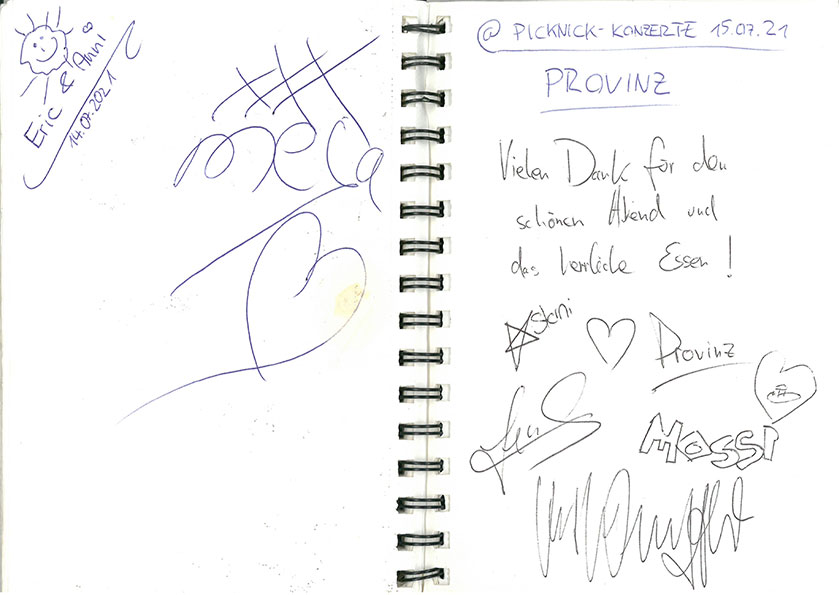 Eric & Anni
14.07.2021
@ PICKNICK-KONZERTE 15.07.21
PROVINZ
Vielen Dank für den
schönen Abend und
das herrliche Essen!
Provinz
MOSSI